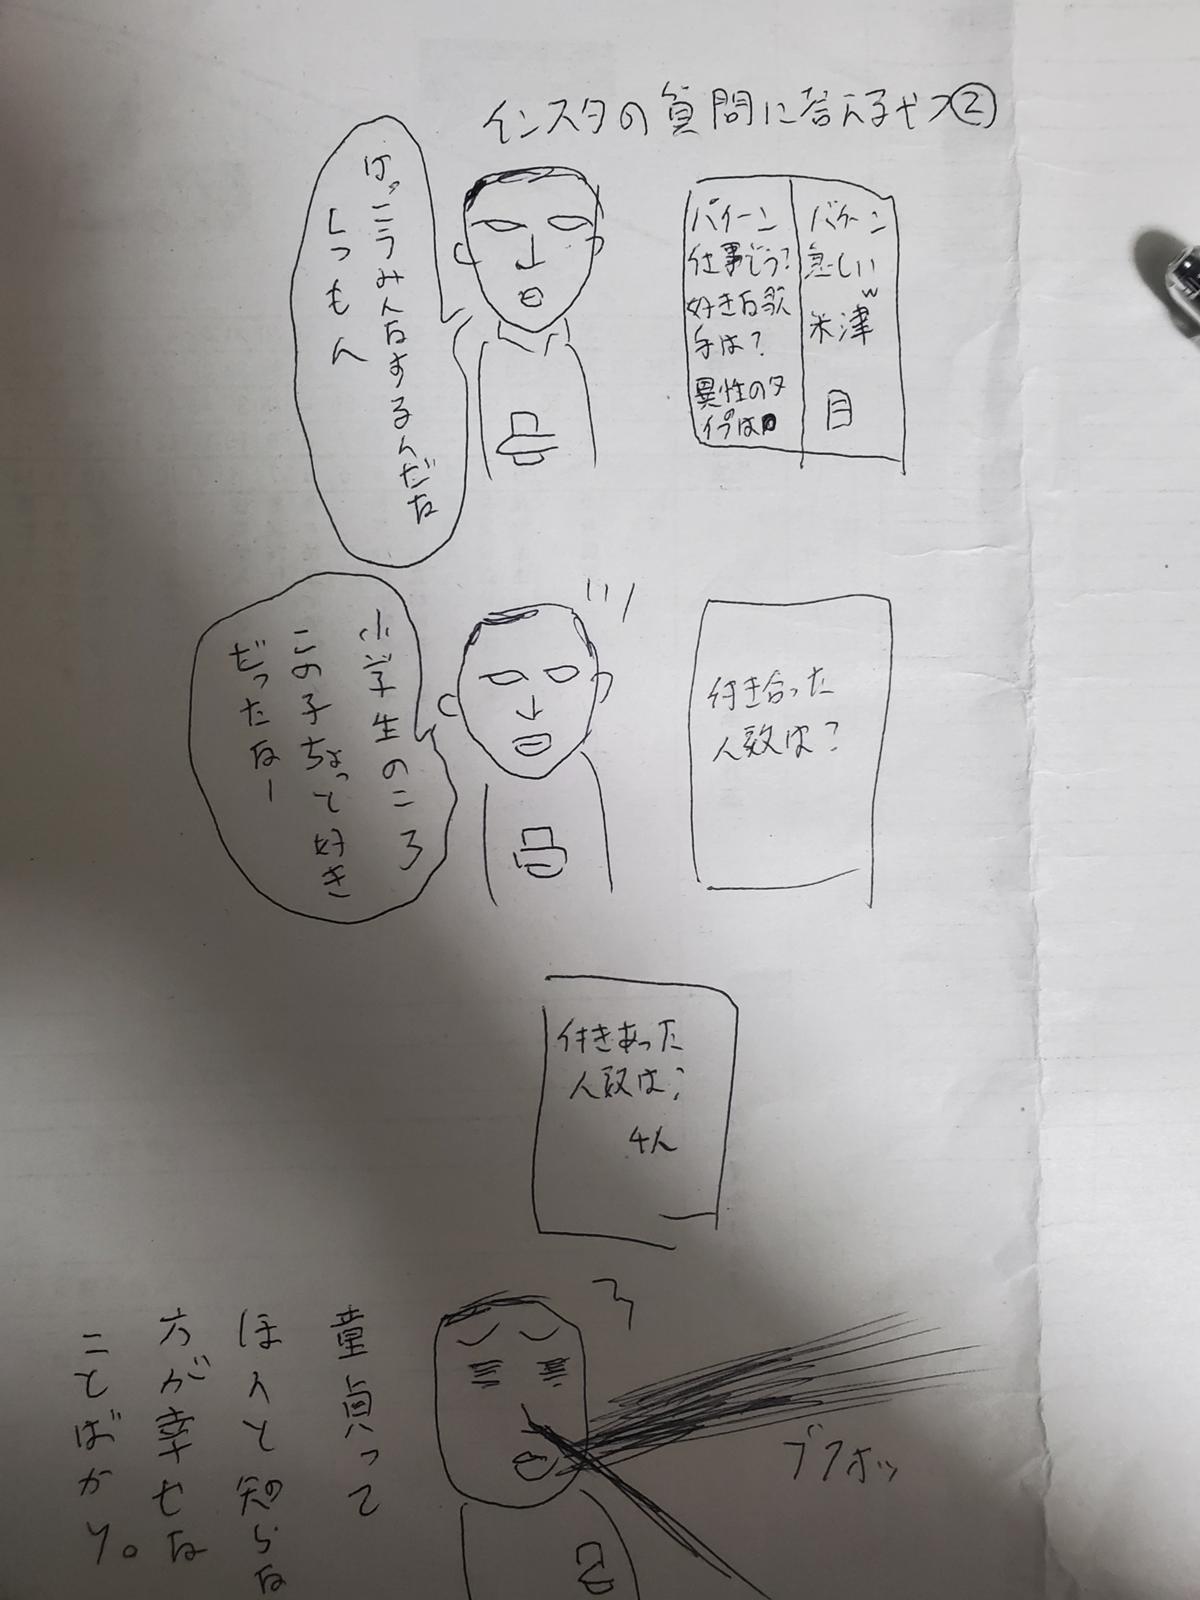 インスタの質問に答えるヤツ②
けっこうみんなするんだな
しつもん
バイーン
仕事どう?
好きな歌
手は?
異性のタ
イプは
バイーン
忙しい
w
米津
目
小学生のころ
この子ちょっと好き
だったなー
付き合った
人数は?
付きあった
人数は?
4人
童貞って
ほんと知らな
方が幸せな
ことばかり。
ブフォッ